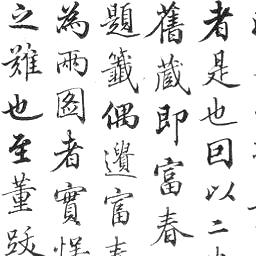 者是也回以二
舊藏即富春
題籤偶遺富春
為兩圖者實
之難也至董跋